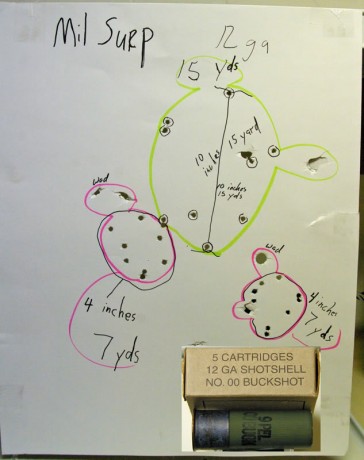 Mil Surp
12 ga
15 yds
15 yard
10 inches
10 inches
15 yds
wad
wad
4 inches
7 yds
4 inches
7 yds
5 CARTRIDGES
12 GA SHOTSHELL
NO. 00 BUCKSHOT
9 PEL